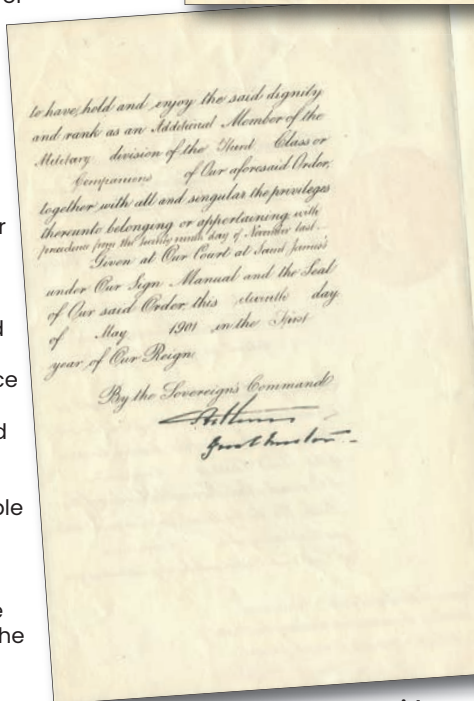 r
d
ce
d
ole
e
he
to have, hold and enjoy the said dignity
and rank as an Additional Member of the
Military division of the Third Class or
Companions of Our aforesaid Order,
together with all and singular the privileges
thereunto belonging or appertaining with
precedence from the twenty ninth day of November last
Given at Our Court at Saint James's
under Our Sign Manual and the Seal
of Our said Order, this eleventh day
of May 1901 in the First
year of Our Reign
By the Sovereign's Command